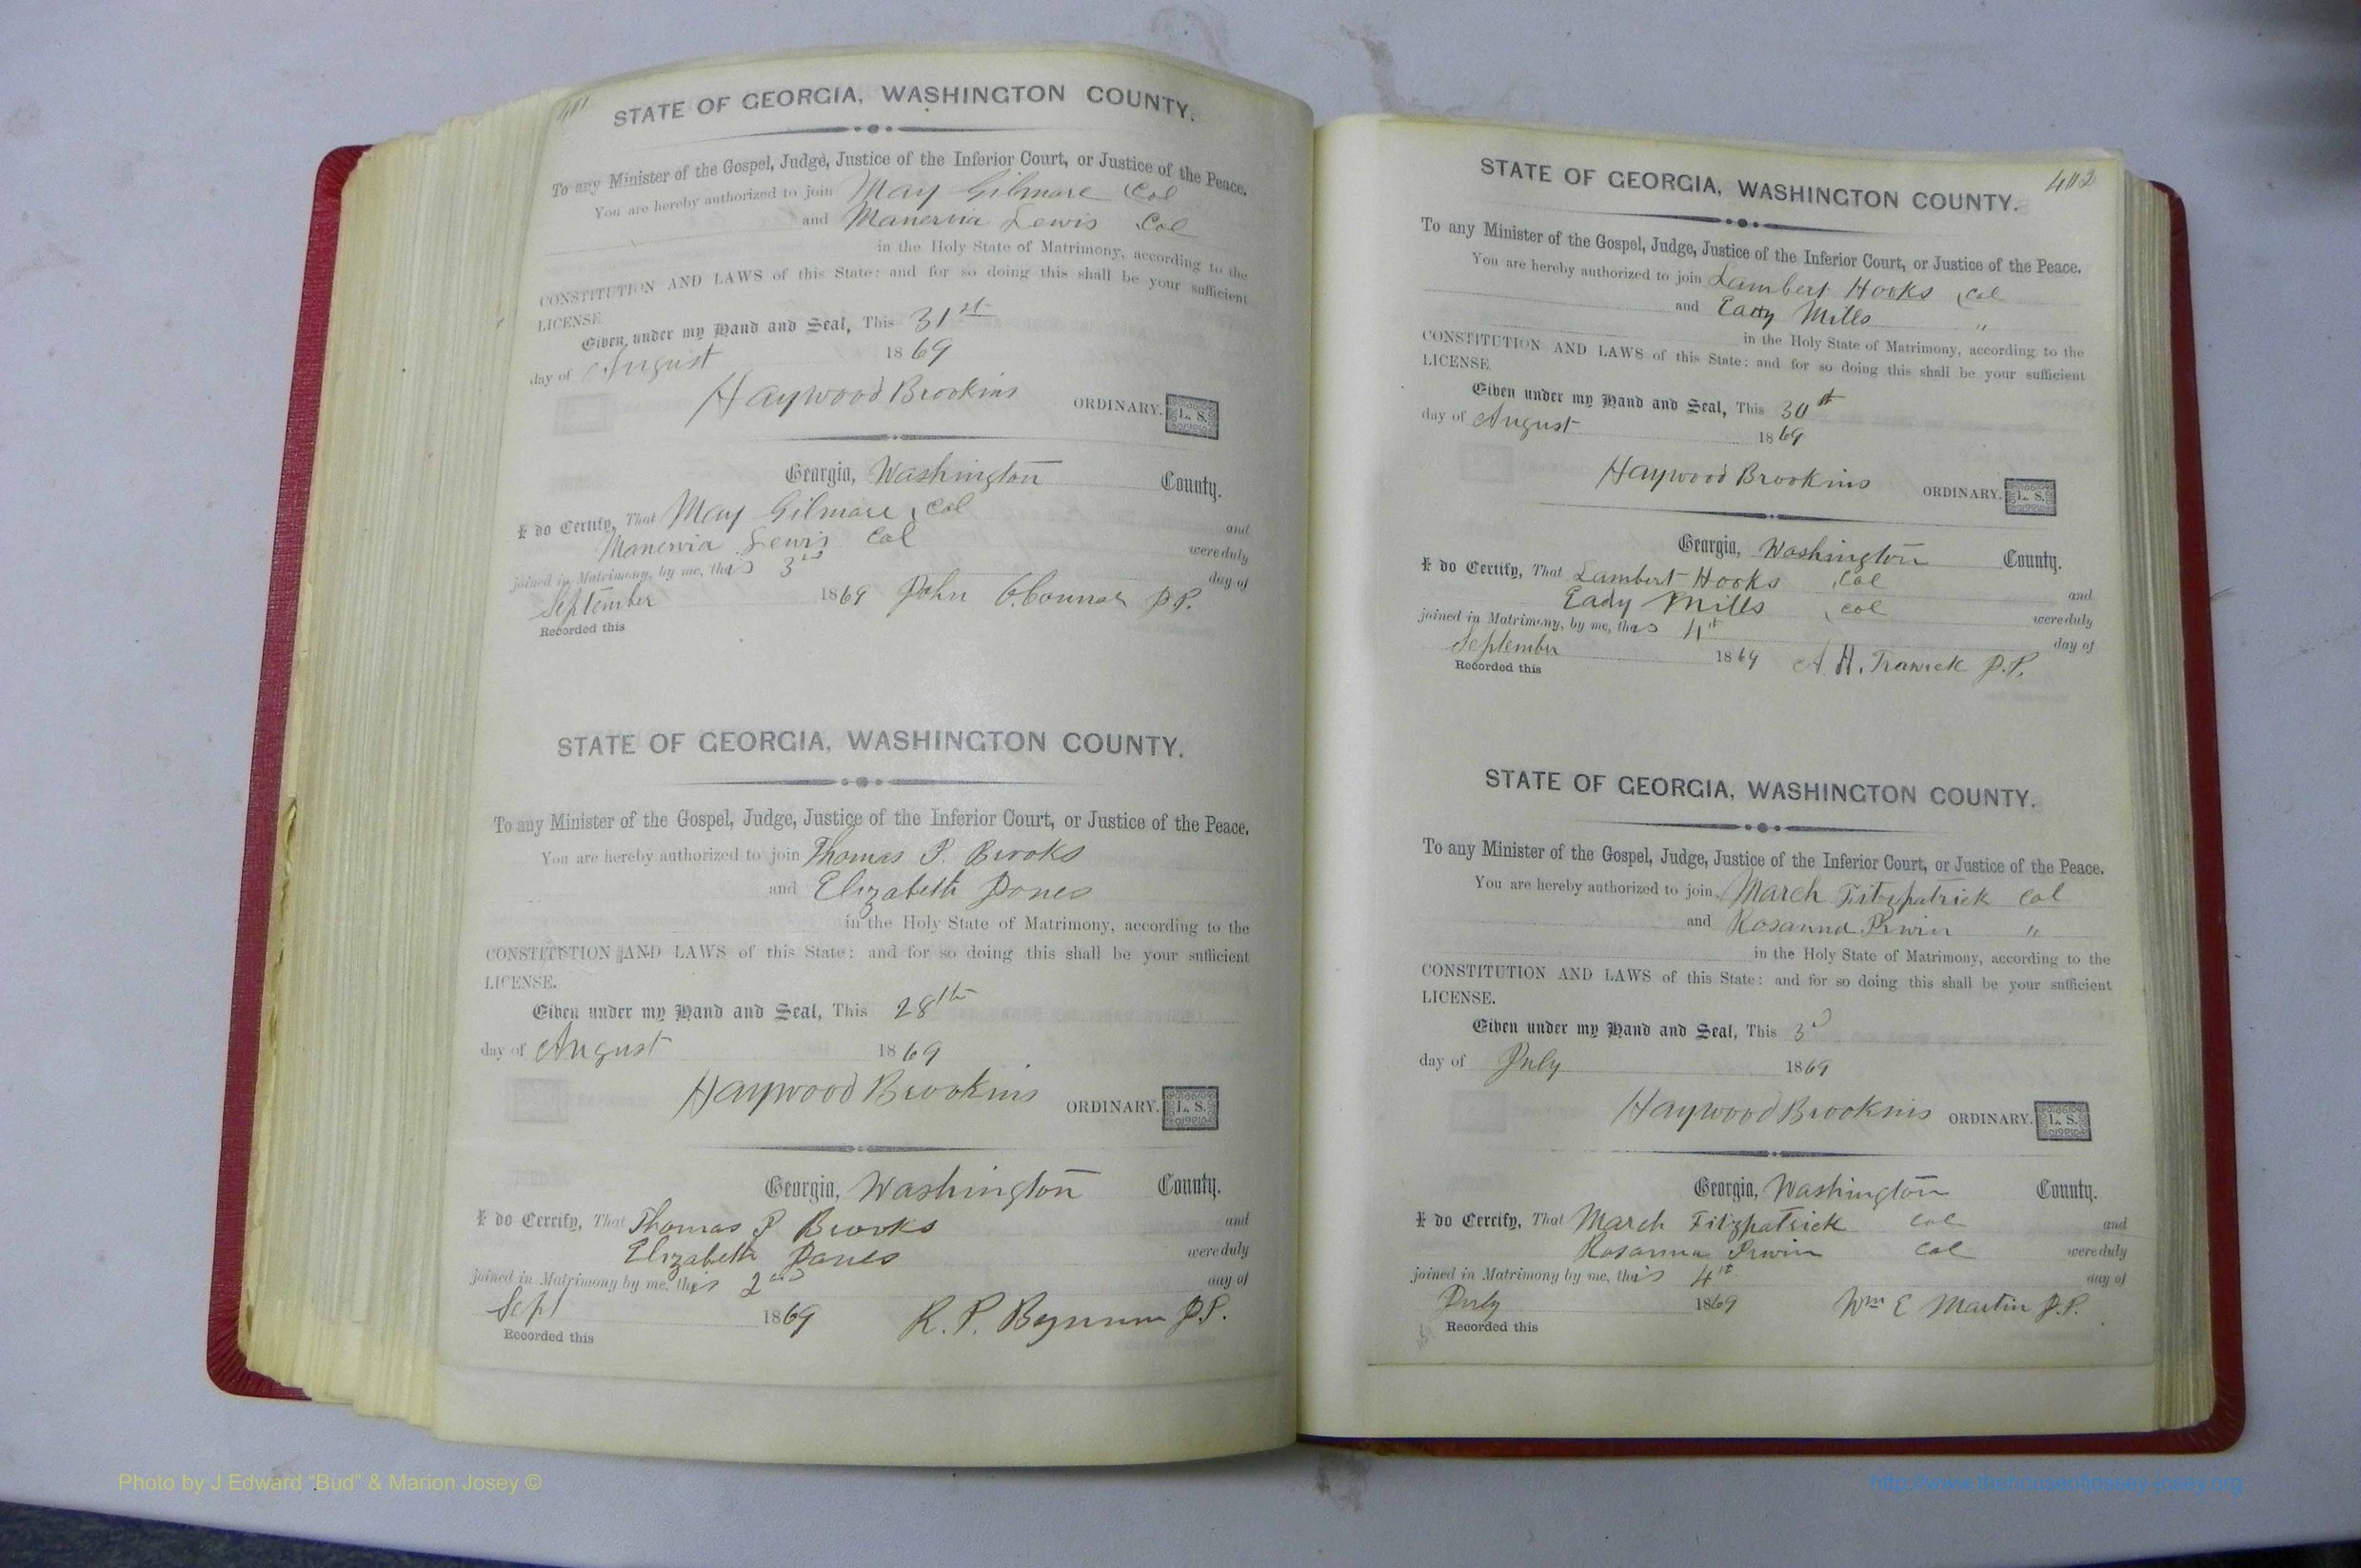 401
STATE OF GEORGIA, WASHINGTON COUNTY.
To any Minister of the Gospel, Judge, Justice of the Inferior Court, or Justice of the Peace.
You are hereby authorized to join May Gilmore Col
and Manervia Lewis Col
in the Holy State of Matrimony, according to the
CONSTITUTION AND LAWS of this State: and for so doing this shall be your sufficient
LICENSE.
Given under my Hand and Seal, This 31st
day of August 1869
Haywood Brookins ORDINARY. L. S.
Georgia, Washington County.
I do Certify, That May Gilmore, Col and
Manervia Lewis Col were duly
joined in Matrimony, by me, this 3rd day of
September 1869 John O.Connor J.P.
Recorded this
STATE OF GEORGIA, WASHINGTON COUNTY.
To any Minister of the Gospel, Judge, Justice of the Inferior Court, or Justice of the Peace.
You are hereby authorized to join Thomas P. Brooks
and Elizabeth Jones
in the Holy State of Matrimony, according to the
CONSTITUTION AND LAWS of this State: and for so doing this shall be your sufficient
LICENSE.
Given under my Hand and Seal, This 28th
day of August 1869
Haywood Brookins ORDINARY. L. S.
Georgia, Washington County.
I do Certify, That Thomas P Brooks and
Elizabeth Jones were duly
joined in Matrimony by me, this 2nd day of
Sept 1869 R. P. Bynum J.P.
Recorded this
402
STATE OF GEORGIA, WASHINGTON COUNTY.
To any Minister of the Gospel, Judge, Justice of the Inferior Court, or Justice of the Peace.
You are hereby authorized to join Lambert Hooks Col
and Eady Mills "
in the Holy State of Matrimony, according to the
CONSTITUTION AND LAWS of this State: and for so doing this shall be your sufficient
LICENSE.
Given under my Hand and Seal, This 30th
day of August 1869
Haywood Brookins ORDINARY. L. S.
Georgia, Washington County.
I do Certify, That Lambert Hooks Col and
Eady Mills Col were duly
joined in Matrimony, by me, this 4th day of
September 1869 A. H. Trawick J.P.
Recorded this
STATE OF GEORGIA, WASHINGTON COUNTY.
To any Minister of the Gospel, Judge, Justice of the Inferior Court, or Justice of the Peace.
You are hereby authorized to join March Fitzpatrick Col
and Rosanna Irwin "
in the Holy State of Matrimony, according to the
CONSTITUTION AND LAWS of this State: and for so doing this shall be your sufficient
LICENSE.
Given under my Hand and Seal, This 3d
day of July 1869
Haywood Brookins ORDINARY. L. S.
Georgia, Washington County.
I do Certify, That March Fitzpatrick Col and
Rosanna Irwin Col were duly
joined in Matrimony by me, this 4th day of
July 1869 Wm E Martin J.P.
Recorded this
Photo by J Edward "Bud" & Marion Josey ©